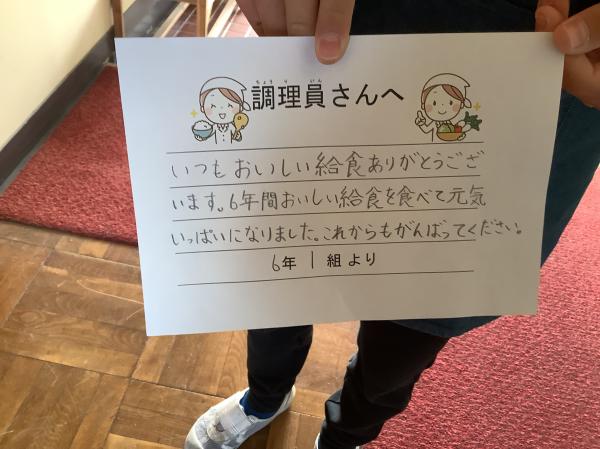 調理員さんへ
ちょうりいん
いつもおいしい給食ありがとうござ
います。6年間おいしい給食を食べて元気
いっぱいになりました。これからもがんばってください。
6年 1 組 より